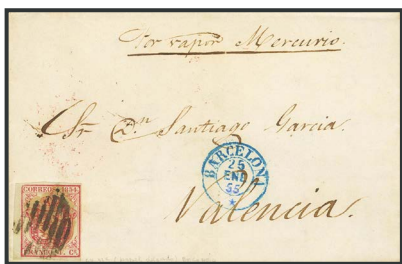 Por vapor Mercurio.
Sr. Dn. Santiago Garcia.
BARCELONA
25
ENE
55
Valencia.
CORREOS 1854